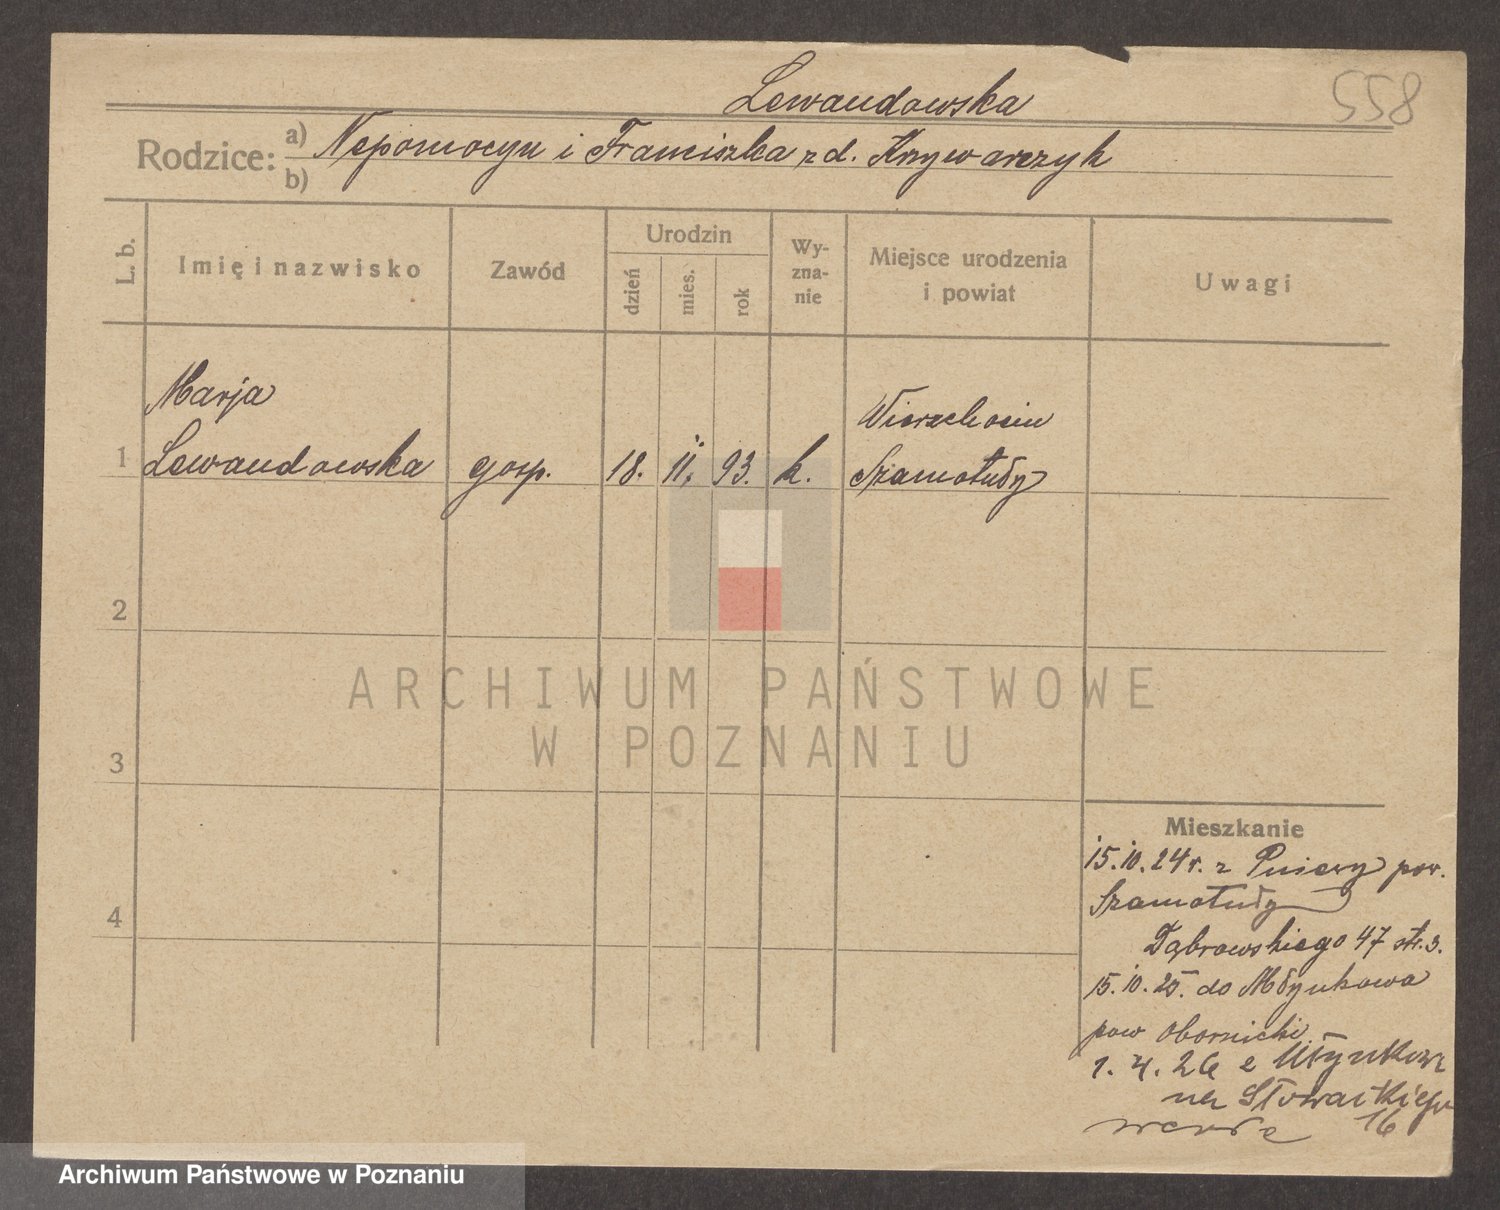 Lewandowska
558
Rodzice: a) Nepomocyn i Franciszka z d. Krzywarczyk
b)
L. b.
Imię i nazwisko
Zawód
Urodzin
dzień
mies.
rok
Wy-
zna-
nie
Miejsce urodzenia
i powiat
Uwagi
Marja
1 Lewandowska gosp. 18. 11. 93. k.
Wierzchocin
Szamotuły
2
ARCHIWUM PAŃSTWOWE
W POZNANIU
3
4
Mieszkanie
15.10.24 r. z Pniewy pow.
Szamotuły
Dąbrowskiego 47 str. 3.
15.10.25. do Młynkowa
pow Obornicki
1. 4. 26 z Młynkowa
na Słowackiego
16
Archiwum Państwowe w Poznaniu